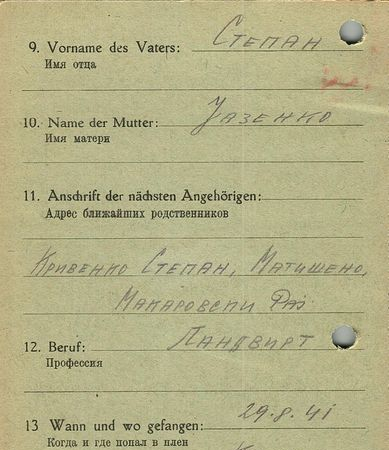 9. Vorname des Vaters: Степан
Имя отца
10. Name der Mutter: Уазенко
Имя матери
11. Anschrift der nächsten Angehörigen:
Адрес ближайших родственников
Кривенко Степан, Матишено,
Макаровски Раз
12. Beruf: Ландвирт
Профессия
13 Wann und wo gefangen: 29.8.41
Когда и где попал в плен